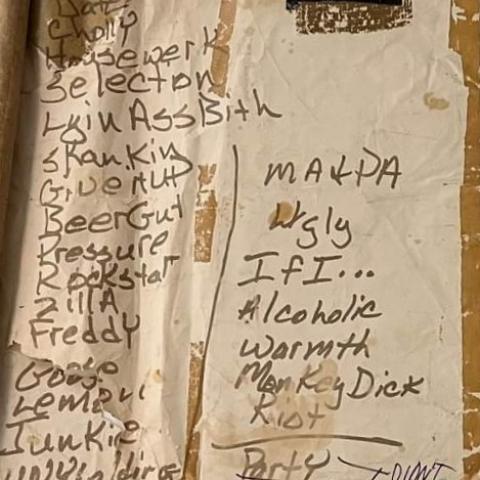 Date
Cholly
Housewerk
Selection
Lyin Ass Bith
Skankin
BeerGut
Pressure
Rockstar
ZillA
Freddy
Junkie
MA & PA
Ugly
If I...
Alcoholic
Warmth
Monkey Dick
Riot
Party